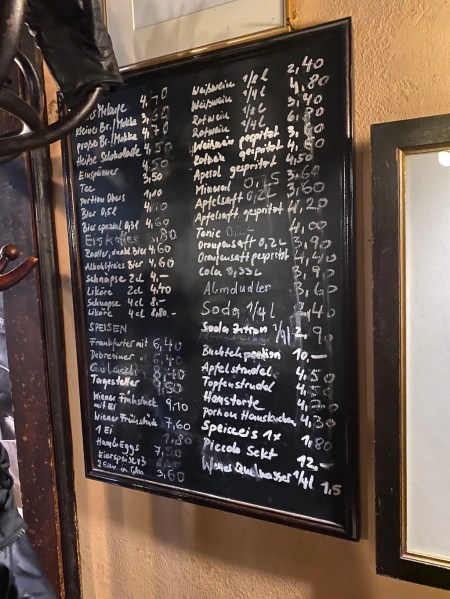 Melange 4,
kleiner Br./Mokka
großer Br./Mokka
Heiße Schokolade 4,50
Einspänner 4,50
Tee 3,50
Portion Obers
Bier 0,5l
Bier spezial 0,3l 4,60
Eiskaffee 5,80
Radler, dunkl. Bier 4,60
Alkoholfreies Bier 4,60
Schnapse 2cl 4,-
Liköre 2cl
Schnapse 4cl 8,-
Liköre 4cl 8,80.-
SPEISEN
Frankfurter mit 6,40
Debreziner 6,40
Gulasch
Tagesteller
Wiener Frühstück
mit Ei 9,10
Wiener Frühstück 7,60
1 Ei 1,80
Ham & Eggs 7,50
Eierspeise v3
2 Eier im Glas 3,60
Weißwein 1/8 l 2,40
Weißwein 1/4 l 4,80
Rotwein 1/8 l
Rotwein 1/4 l
Weißwein gespritzt
Rotwein gespritzt
Aperol gespritzt 4,50
Mineral 3,60
Apfelsaft 0,2l 3,60
Apfelsaft gespritzt 4,20
Tonic 0,2l 4,00
Orangensaft 0,2l 3,90
Orangensaft gespritzt 4,40
Cola 0,33l 3,90
Almdudler 3,60
Soda 1/4 l 2,40
Soda Zitron 1/4 l 2,90
Buchtelportion 10,-
Apfelstrudel 4,50
Topfenstrudel 4,50
Haustorte
Portion Hauskuchen 4,30
Speiseeis 1x 1,80
Piccolo Sekt 12,-
Wiener Quellwasser 1/4 l 1,5